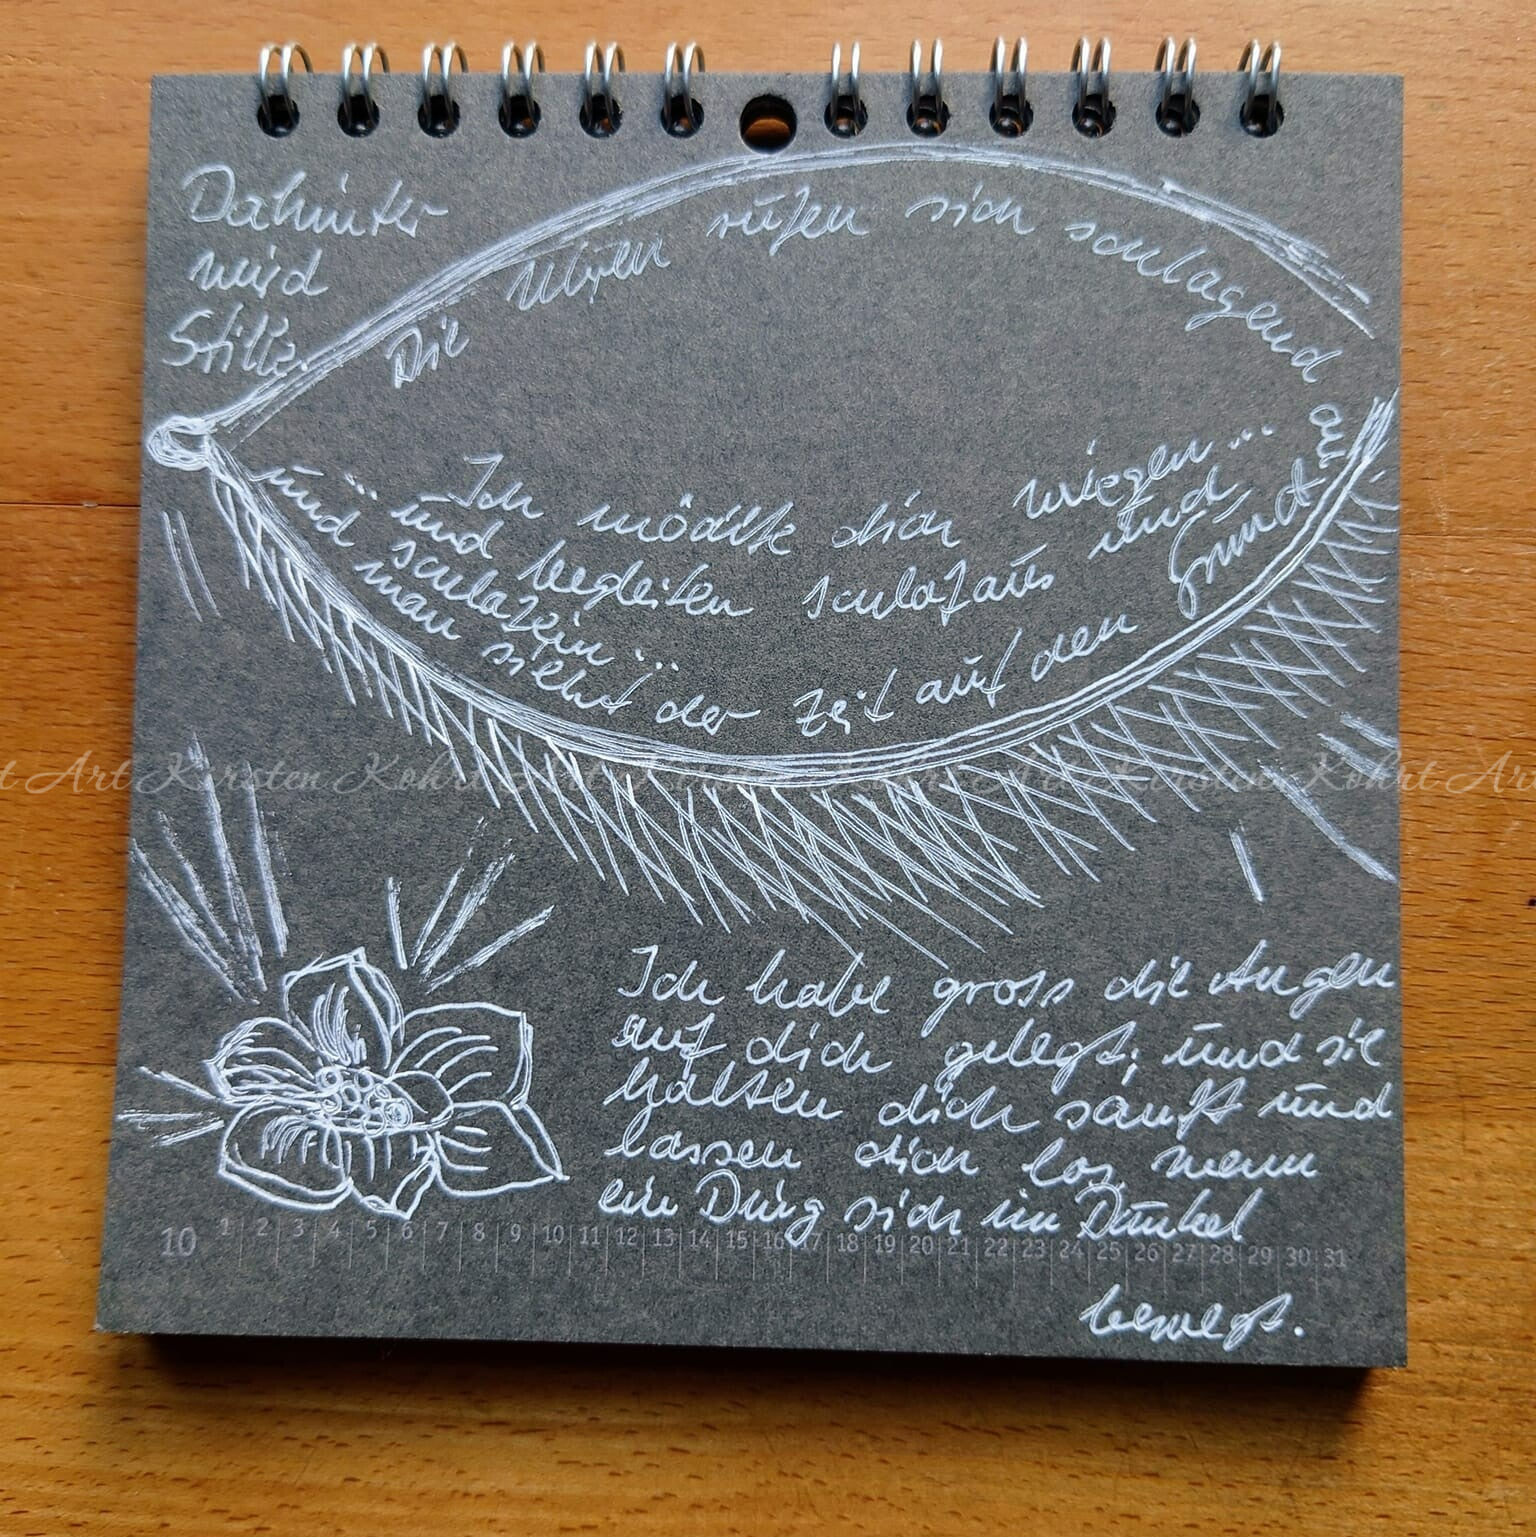 Dahinter
wird
Stille.
Die Uhren rufen sich schlagend an,
Ich möchte dich wiegen...
... und begleiten schlafaus und
schlafein...
und man sieht der Zeit auf den Grund.
Ich habe gross die Augen
auf dich gelegt; und sie
halten dich sanft und
lassen dich los, wenn
ein Ding sich im Dunkel
bewegt.
10 1 2 3 4 5 6 7 8 9 10 11 12 13 14 15 16 17 18 19 20 21 22 23 24 25 26 27 28 29 30 31
Art Kirsten Kohrt Art Kirsten Kohrt Art